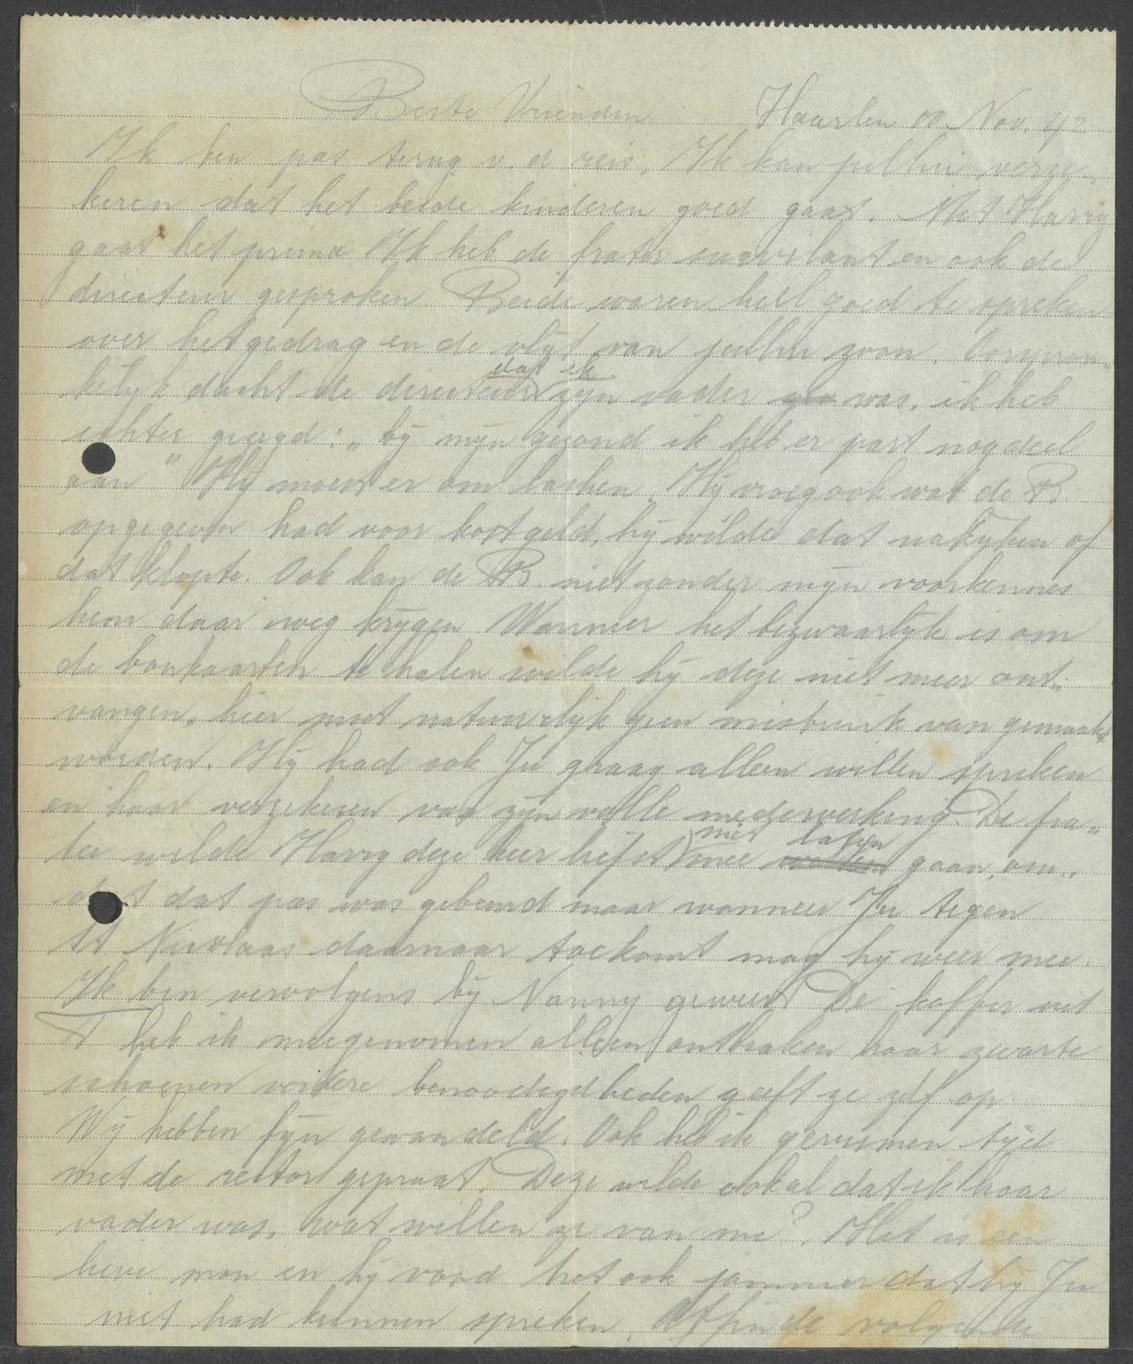 Beste Vrienden Haarlem Nov. 42
Ik ben pas terug v. d reis, Ik kan jullie verze-
keren dat het beide kinderen goed gaat. Met Harry
gaat het prima Ik heb de frater surveilant en ook de
directeur gesproken Beide waren heel goed te spreken
over het gedrag en de vlijt van jullie zoon. Oorspron-
kelijk dacht de directeur dat ik zijn vader was, ik heb
echter gezegd: „bij mijn gezond ik heb er part nog deel
aan" Hij moest er om lachen. Hij vroeg ook wat de B.
opgegeven had voor kostgeld, hij wilde dat nakijken of
dat klopte. Ook kan de B. niet zonder mijn voorkennes
hem daar weg krijgen Wanneer het bezwaarlijk is om
de bonkaarten te halen wilde hij deze niet meer ont-
vangen, hier moet natuurlijk geen misbruik van gemaakt
worden. Hij had ook Ju graag alleen willen spreken
en haar verzekeren van zijn volle medewerking. De fra-
ter wilde Harry deze keer liefst niet mee laten gaan, om-
dat dat pas was gebeurd maar wanneer Ju tegen
St. Nicolaas daarnaar toekomt mag hij weer mee.
Ik ben vervolgens bij Nanny geweest De koffer uit
T heb ik meegenomen alleen ontbraken haar zwarte
schoenen verdere benoodigdheden geeft ze zelf op.
Wij hebben fijn gewandeld. Ook heb ik geruimen tijd
met de rector gepraat. Deze wilde ook al dat ik haar
vader was, wat willen ze van me? Het is een
lieve man en hij vond het ook jammer dat hij Ju
niet had kunnen spreken, Afijn de volgende